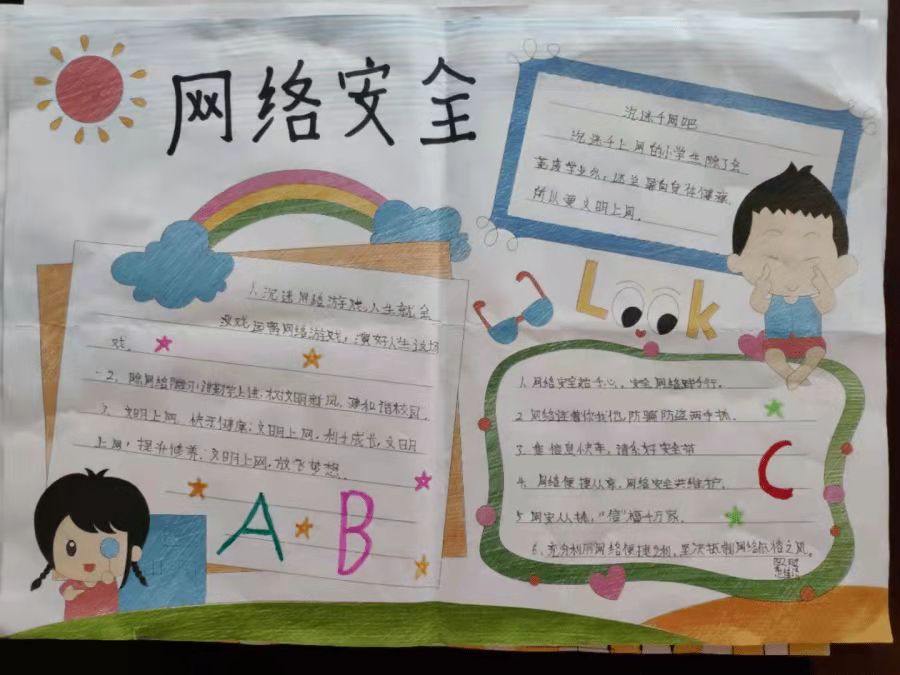 网络安全
沉迷于网吧
沉迷于上网的小学生除了会
荒废学业外，还会
所以要文明上网。
Look
1、沉迷网络游戏，人生就会
没戏 远离网络游戏，演好人生这场
戏。
2、除网络陋习，谱勤学上进，校文明新风，建和谐校园
3、文明上网，快乐健康；文明上网，利于成长 文明
上网，提升修养；文明上网，放飞梦想。
A
B
1、网络安全始于心，安全网络践于行。
2 网络连着你我他，防骗防盗两手抓。
3、乘信息快车，请系好安全带
4、网络便捷人享，网络安全共维护。
5 网安人人抓，“信”福千万家。
6、充分利用网络便捷之利，坚决抵制网络低俗之风。
C